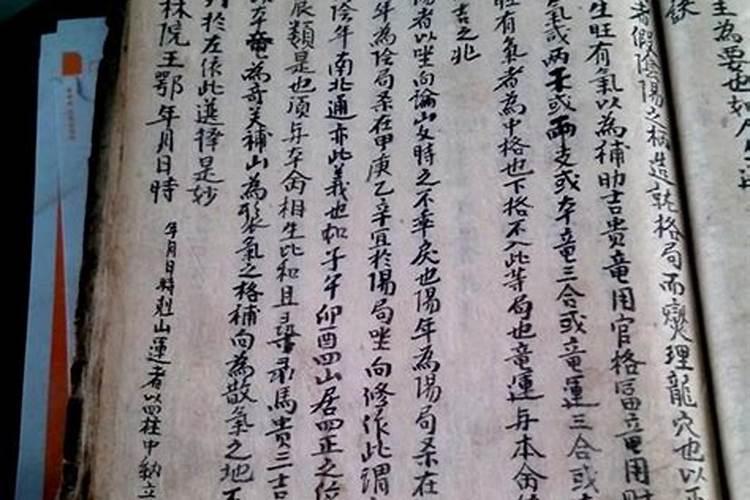 主為要也如人生
訣
者假陰陽之柄造就格局而燮理龍穴也以
生旺有氣以為補助吉貴竜用官格富竜用財
氣或兩干或兩支或本竜三合或竜運三合或
旺有氣者為中格也下格不入此等局也竜運与本命
吉之兆
陽者以坐向論山文時之不乖戾也陽年為陽局系在
年為陰局系在甲庚乙辛宜於陽局坐向修作此謂
陰年南北通亦此義也如子午卯酉四山居四正之位
辰類是也須与本命相生比和且尋录馬貴三吉
本竜為奇美補山為聚氣之格補向為散氣之地
列於左依此選擇是妙
林院王鄂年月日時
年月日時剋山運者以四柱中納